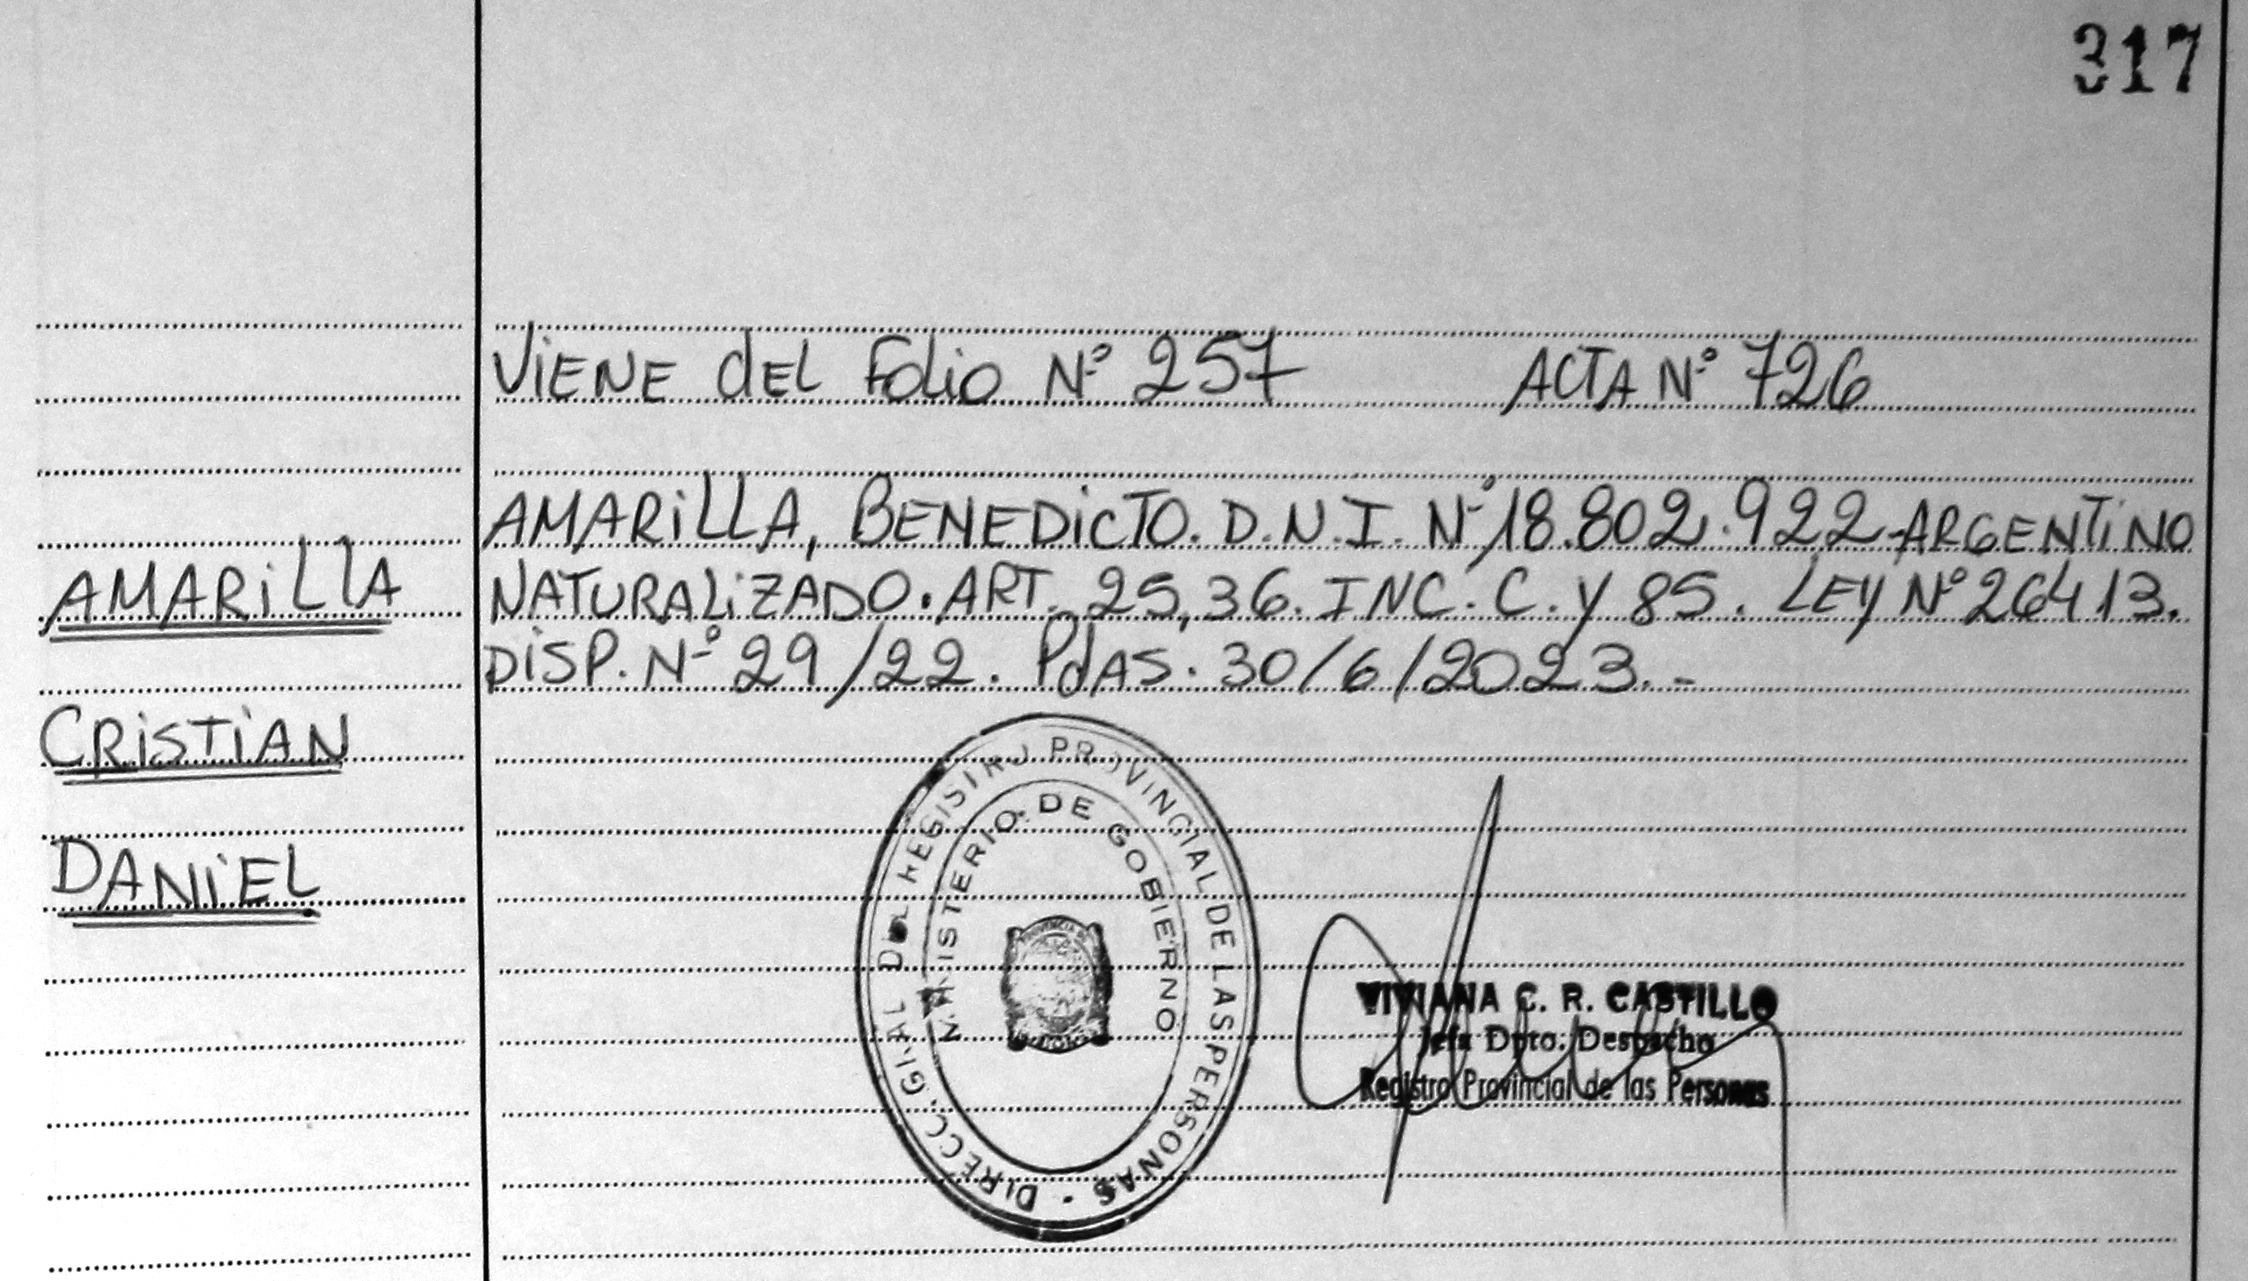 317
ViENE dEL Folio Nº 257 ACTA Nº 726
AMARiLLA, BENEDicTO. D.N.I. Nº 18.802.922 ARGENTiNO
NATURALiZADO. ART. 25,36. INC. C. y 85. LEY Nº 26413.
DiSP. Nº 29/22. PdAS. 30/6/2023.-
AMARiLLA
CRiSTiAN
DANiEL
DIRECC. GRAL DEL REGISTRO PROVINCIAL DE LAS PERSONAS -
MINISTERIO DE GOBIERNO
VIVIANA C. R. CASTILLO
Jefa Dpto. Despacho
Registro Provincial de las Personas